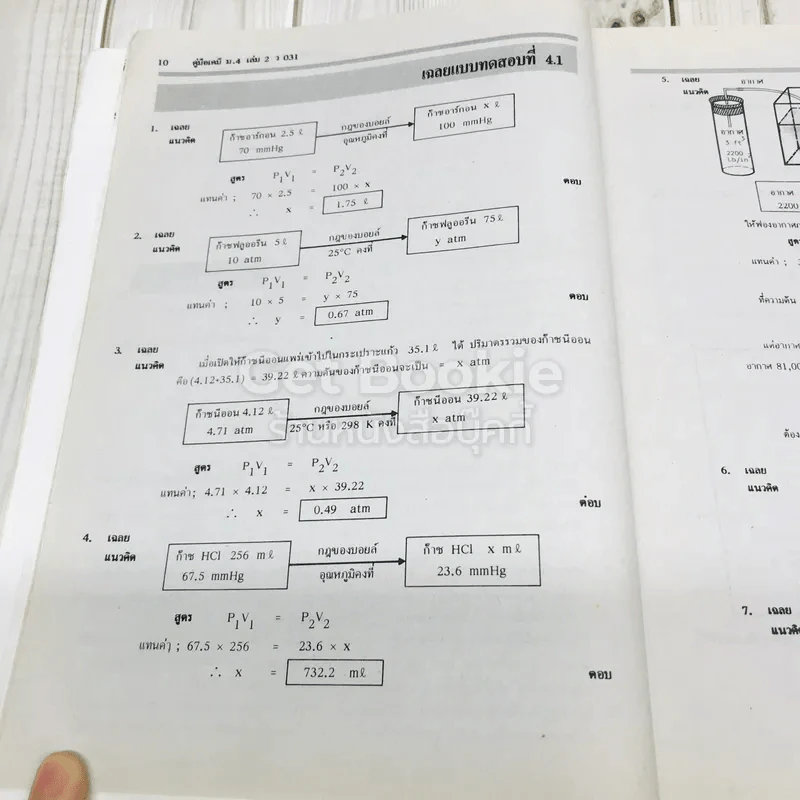 10 คู่มือเคมี ม.4 เล่ม 2 ว 031
เฉลยแบบทดสอบที่ 4.1
1. เฉลย
แนวคิด
ก๊าซอาร์กอน 2.5 ℓ
70 mmHg
กฎของบอยล์
อุณหภูมิคงที่
ก๊าซอาร์กอน x ℓ
100 mmHg
สูตร P₁V₁ = P₂V₂
แทนค่า ; 70 × 2.5 = 100 × x
∴ x = 1.75 ℓ
ตอบ
2. เฉลย
แนวคิด
ก๊าซฟลูออรีน 5 ℓ
10 atm
กฎของบอยล์
25°C คงที่
ก๊าซฟลูออรีน 75 ℓ
y atm
สูตร P₁V₁ = P₂V₂
แทนค่า ; 10 × 5 = y × 75
∴ y = 0.67 atm
ตอบ
3. เฉลย
แนวคิด
เมื่อเปิดให้ก๊าซนีออนแพร่เข้าไปในกระเปราะแก้ว 35.1 ℓ ได้ ปริมาตรรวมของก๊าซนีออน
คือ (4.12+35.1) = 39.22 ℓ ความดันของก๊าซนีออนจะเป็น = x atm
Get Bookie
ร้านหนังสือบุ๊คกี้
ก๊าซนีออน 4.12 ℓ
4.71 atm
กฎของบอยล์
25°C หรือ 298 K คงที่
ก๊าซนีออน 39.22 ℓ
x atm
สูตร P₁V₁ = P₂V₂
แทนค่า; 4.71 × 4.12 = x × 39.22
∴ x = 0.49 atm
ตอบ
4. เฉลย
แนวคิด
ก๊าซ HCl 256 mℓ
67.5 mmHg
กฎของบอยล์
อุณหภูมิคงที่
ก๊าซ HCl x mℓ
23.6 mmHg
สูตร P₁V₁ = P₂V₂
แทนค่า ; 67.5 × 256 = 23.6 × x
∴ x = 732.2 mℓ
ตอบ
5. เฉลย
แนวคิด
อากาศ
อากาศ
3 ft³
2200
lb/in²
อากาศ
2200
ให้ฟองอากาศ
แทนค่า ;
ที่ความดัน
แต่อากาศ
อากาศ 81,00
ต้อง
6. เฉลย
แนวคิด
7. เฉลย
แนวคิด